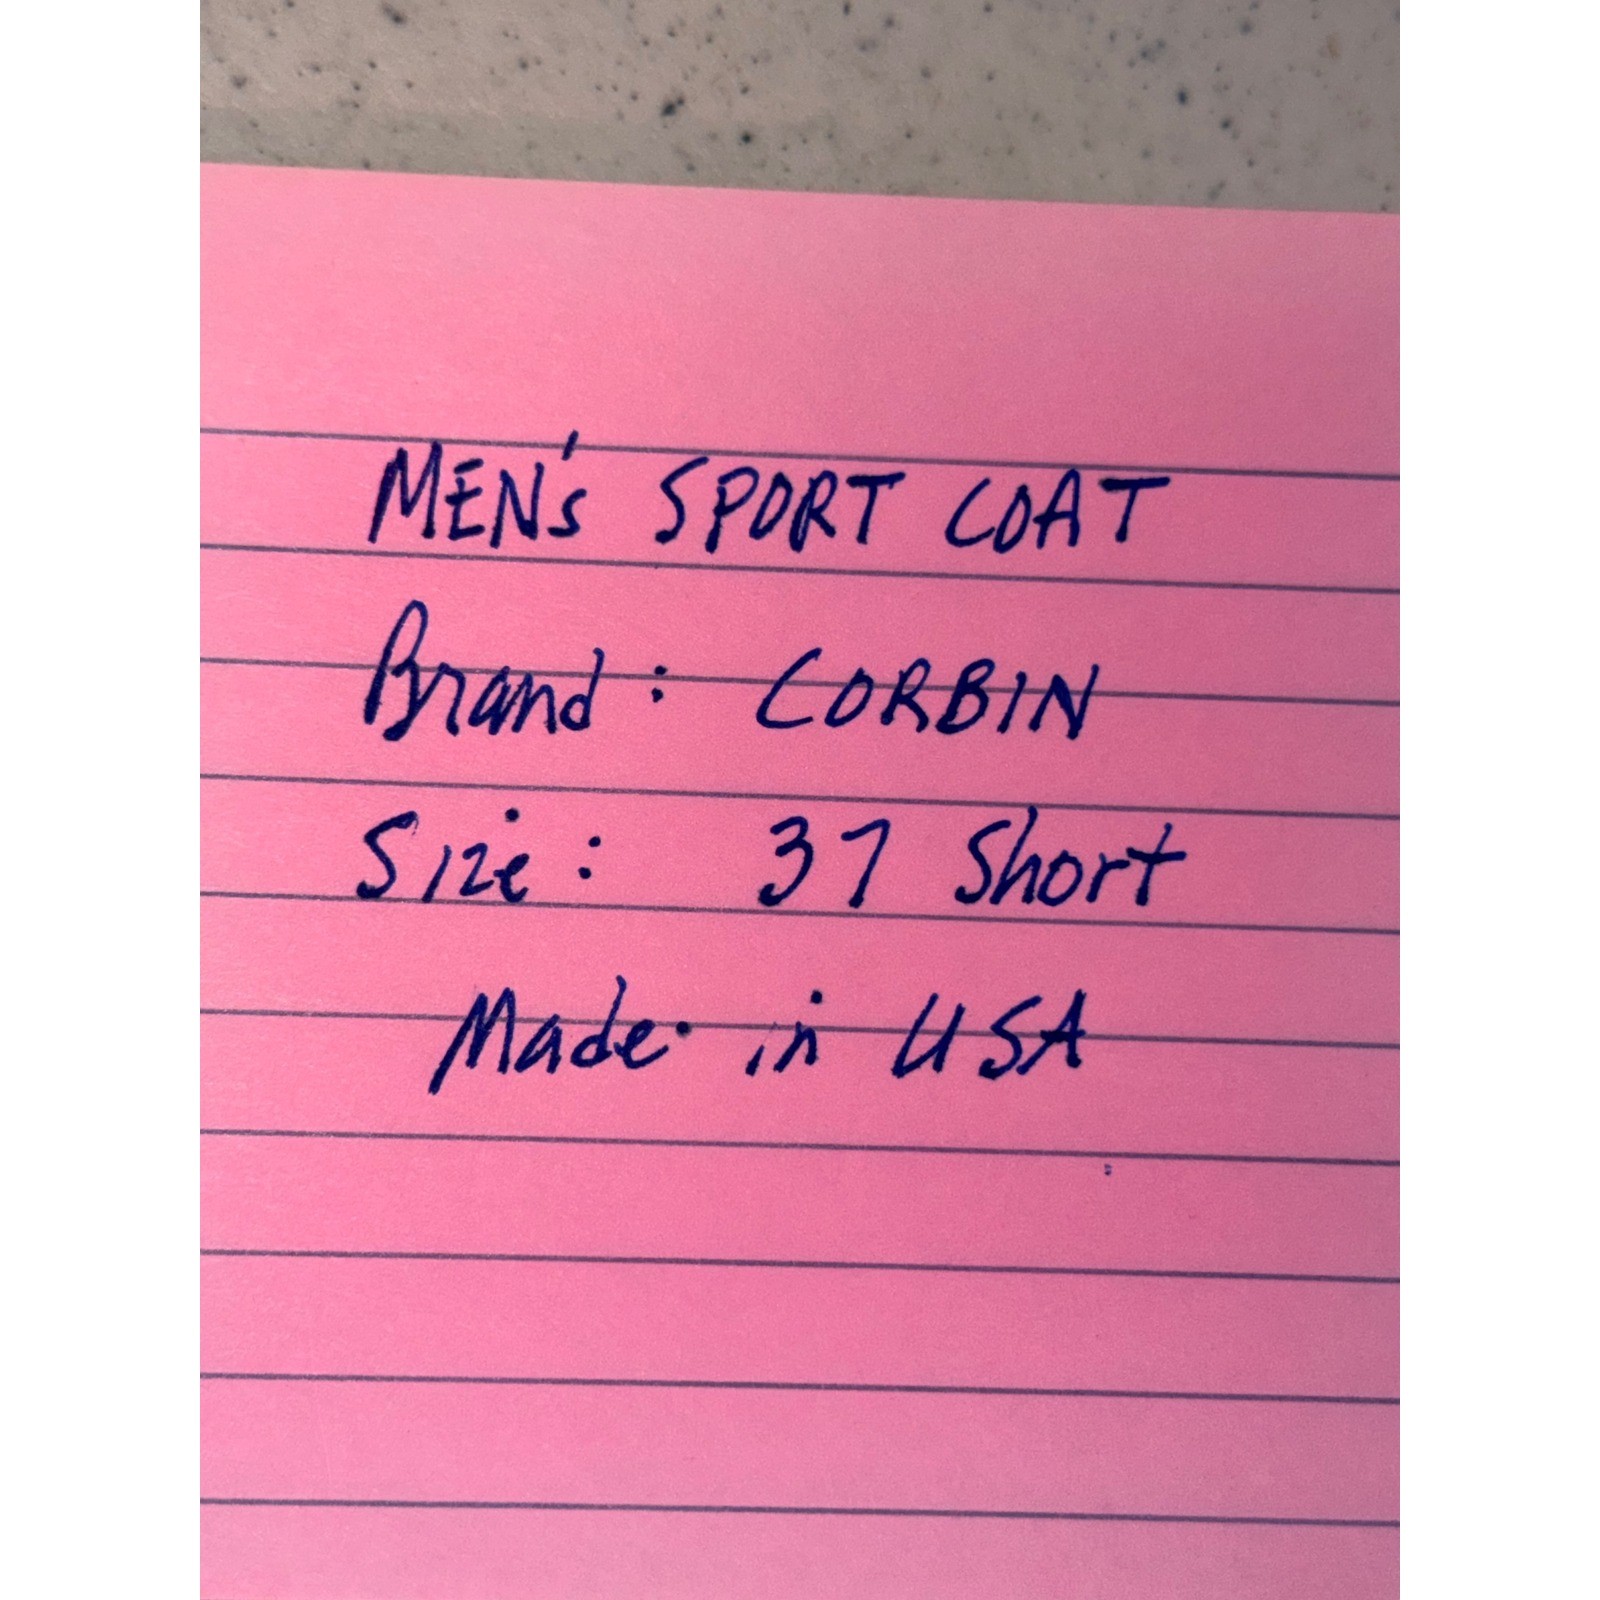 MEN's SPORT COAT
Brand: CORBIN
Size: 37 Short
Made in USA